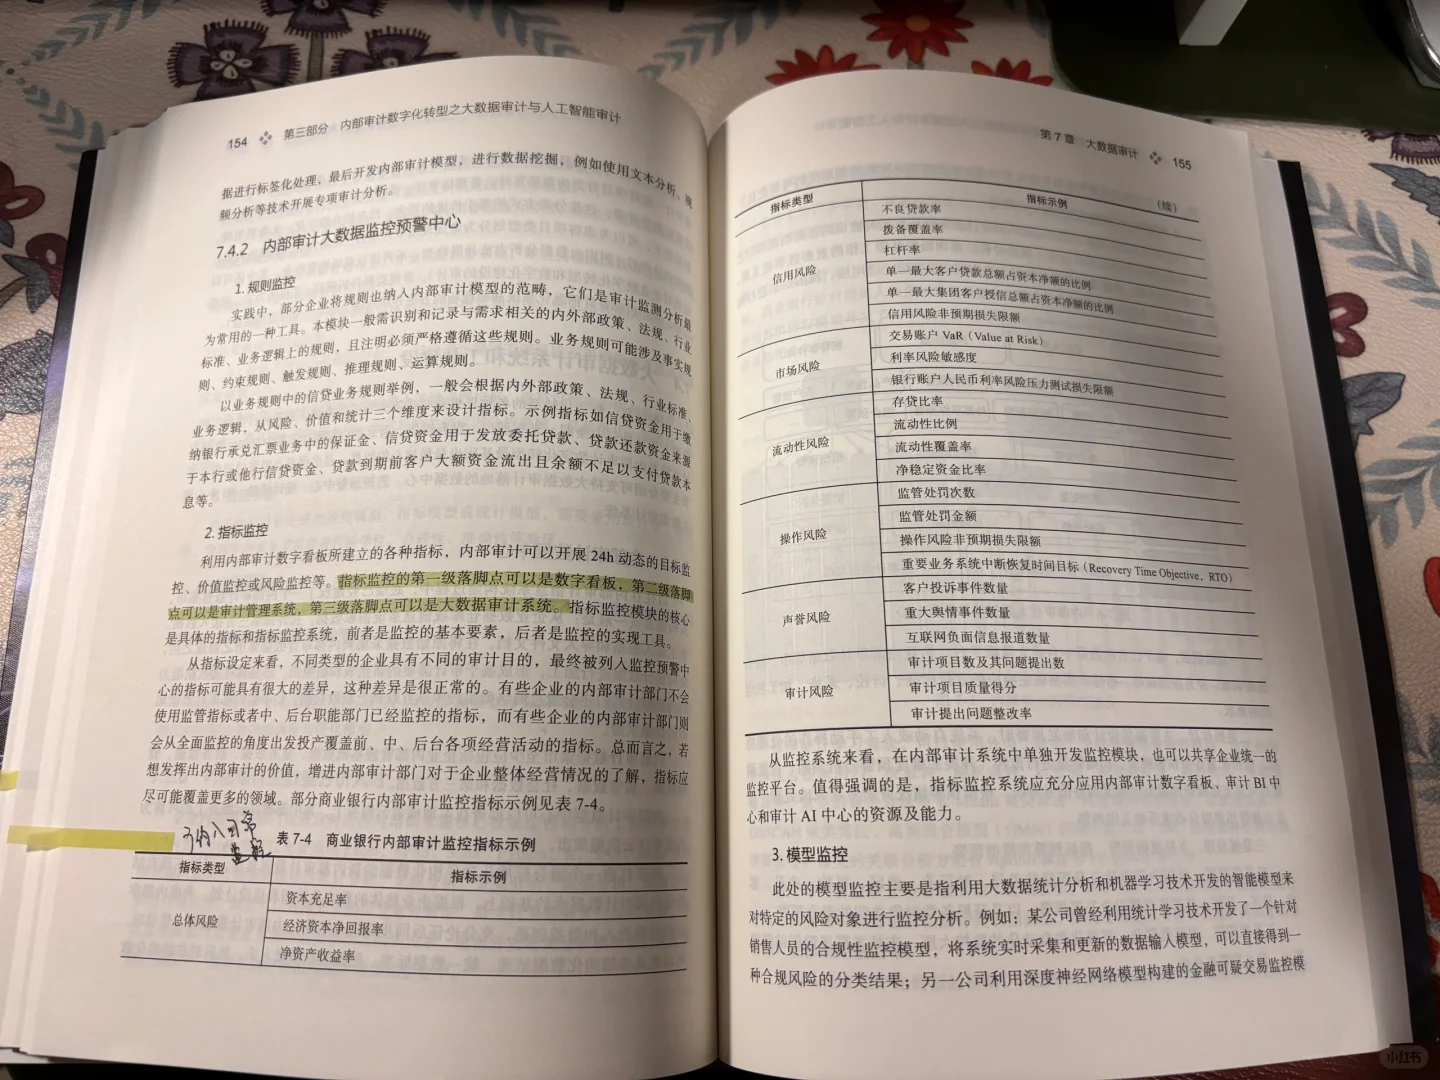 154 第三部分 内部审计数字化转型之大数据审计与人工智能审计
据进行标签化处理，最后开发内部审计模型，进行数据挖掘，例如使用文本分析、视
频分析等技术开展专项审计分析。
7.4.2 内部审计大数据监控预警中心
1. 规则监控
实践中，部分企业将规则也纳入内部审计模型的范畴，它们是审计监测分析最
为常用的一种工具。本模块一般需识别和记录与需求相关的内外部政策、法规、行业
标准、业务逻辑上的规则，且注明必须严格遵循这些规则。业务规则可能涉及事实规
则、约束规则、触发规则、推理规则、运算规则。
以业务规则中的信贷业务规则举例，一般会根据内外部政策、法规、行业标准、
业务逻辑，从风险、价值和统计三个维度来设计指标。示例指标如信贷资金用于缴
纳银行承兑汇票业务中的保证金、信贷资金用于发放委托贷款、贷款还款资金来源
于本行或他行信贷资金、贷款到期前客户大额资金流出且余额不足以支付贷款本
息等。
2. 指标监控
利用内部审计数字看板所建立的各种指标，内部审计可以开展 24h 动态的目标监
控、价值监控或风险监控等。指标监控的第一级落脚点可以是数字看板，第二级落脚
点可以是审计管理系统，第三级落脚点可以是大数据审计系统。指标监控模块的核心
是具体的指标和指标监控系统，前者是监控的基本要素，后者是监控的实现工具。
从指标设定来看，不同类型的企业具有不同的审计目的，最终被列入监控预警中
心的指标可能具有很大的差异，这种差异是很正常的。有些企业的内部审计部门不会
使用监管指标或者中、后台职能部门已经监控的指标，而有些企业的内部审计部门则
会从全面监控的角度出发投产覆盖前、中、后台各项经营活动的指标。总而言之，若
想发挥出内部审计的价值，增进内部审计部门对于企业整体经营情况的了解，指标应
尽可能覆盖更多的领域。部分商业银行内部审计监控指标示例见表 7-4。
纳入日常
监控
表 7-4 商业银行内部审计监控指标示例
指标类型 指标示例
总体风险 资本充足率
经济资本净回报率
净资产收益率
第 7 章 大数据审计 155
（续）
指标类型 指标示例
信用风险 不良贷款率
拨备覆盖率
杠杆率
单一最大客户贷款总额占资本净额的比例
单一最大集团客户授信总额占资本净额的比例
信用风险非预期损失限额
市场风险 交易账户 VaR（Value at Risk）
利率风险敏感度
银行账户人民币利率风险压力测试损失限额
流动性风险 存贷比率
流动性比例
流动性覆盖率
净稳定资金比率
操作风险 监管处罚次数
监管处罚金额
操作风险非预期损失限额
重要业务系统中断恢复时间目标（Recovery Time Objective，RTO）
声誉风险 客户投诉事件数量
重大舆情事件数量
互联网负面信息报道数量
审计风险 审计项目数及其问题提出数
审计项目质量得分
审计提出问题整改率
从监控系统来看，在内部审计系统中单独开发监控模块，也可以共享企业统一的
监控平台。值得强调的是，指标监控系统应充分应用内部审计数字看板、审计 BI 中
心和审计 AI 中心的资源及能力。
3. 模型监控
此处的模型监控主要是指利用大数据统计分析和机器学习技术开发的智能模型来
对特定的风险对象进行监控分析。例如：某公司曾经利用统计学习技术开发了一个针对
销售人员的合规性监控模型，将系统实时采集和更新的数据输入模型，可以直接得到一
种合规风险的分类结果；另一公司利用深度神经网络模型构建的金融可疑交易监控模
小红书